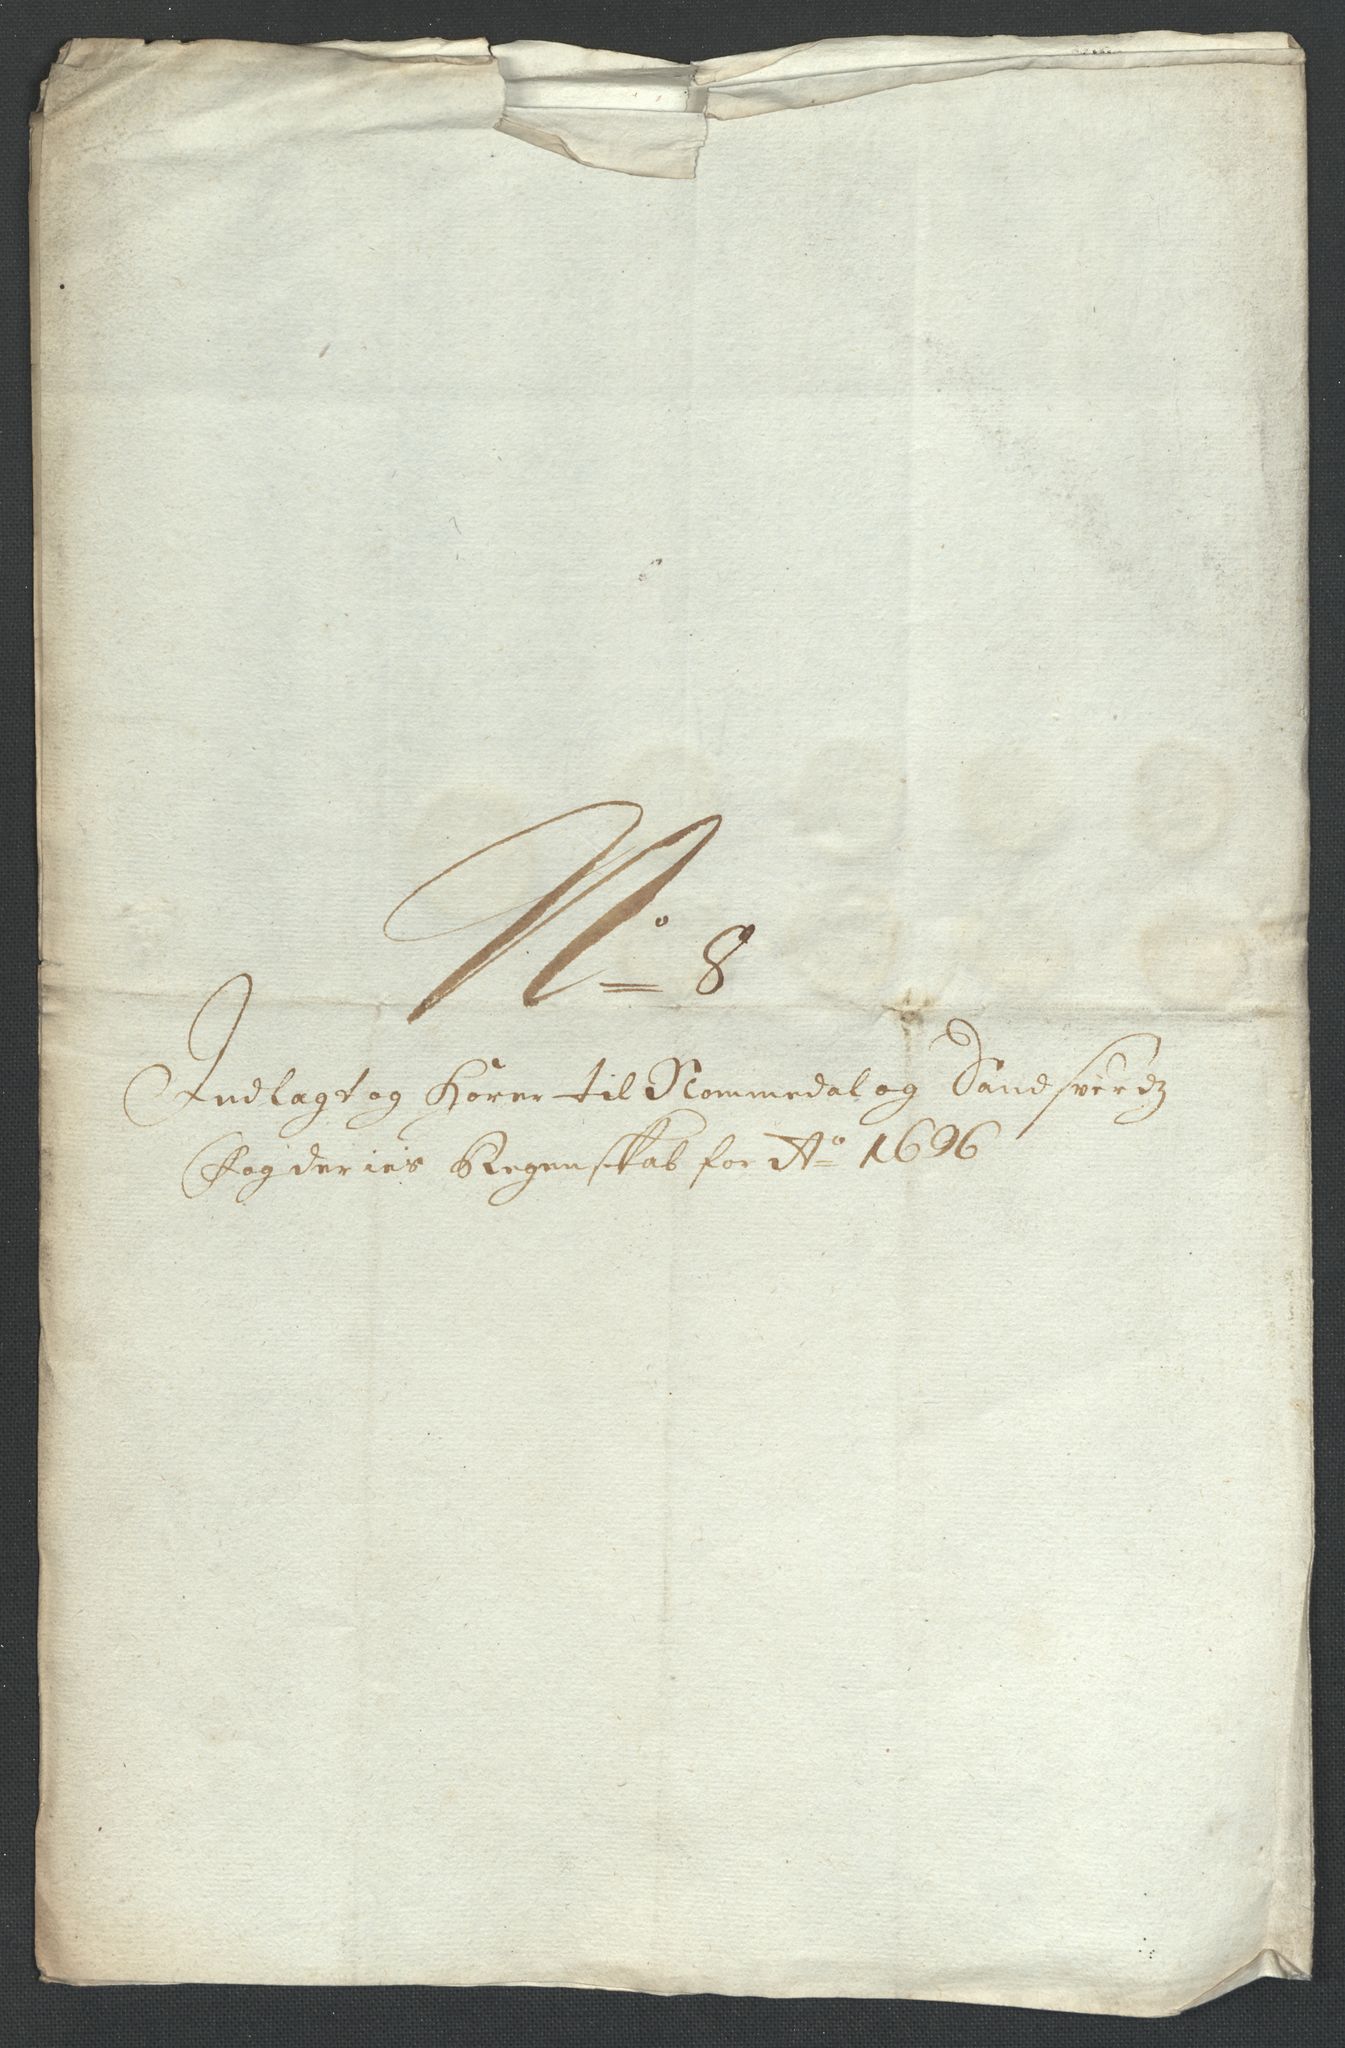 No 8
Indlagt og hörer til Nommedal og Sandsverdz
Fogderies Regenskab for Ao 1696